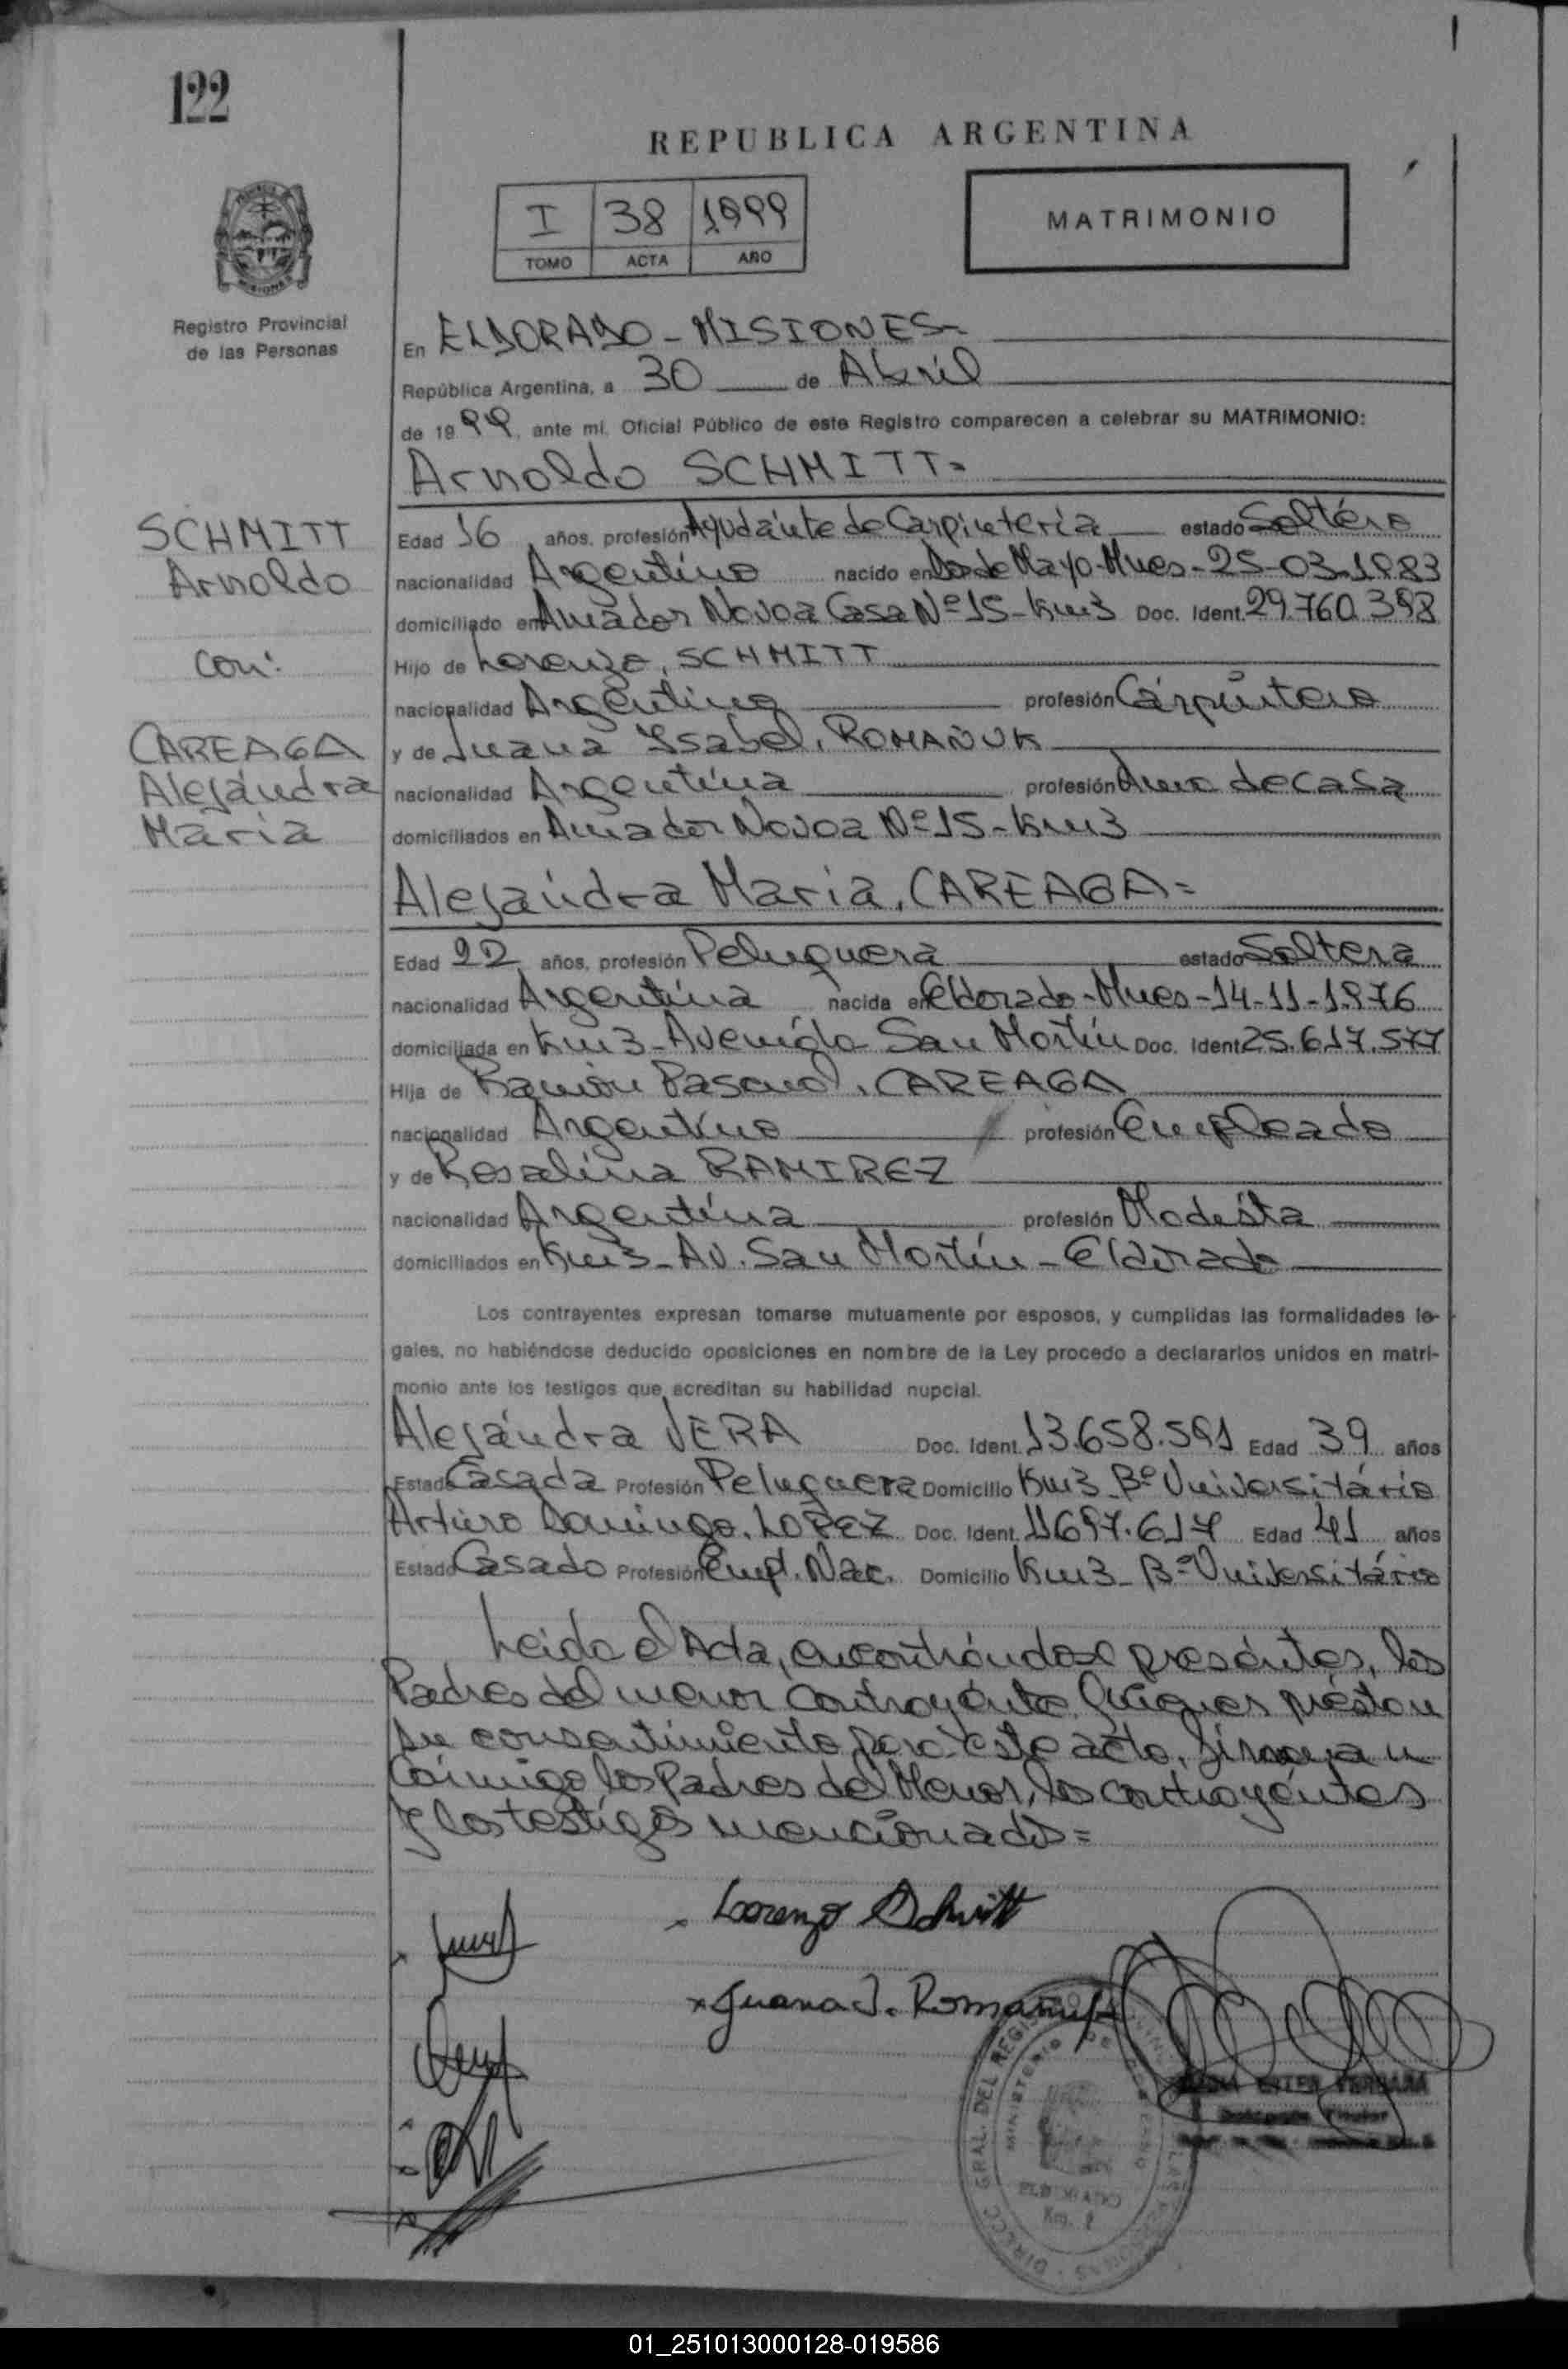 122
REPUBLICA ARGENTINA
I 38 1999
TOMO ACTA AÑO
MATRIMONIO
Registro Provincial
de las Personas
En ELDORADO - MISIONES=
República Argentina, a 30 de Abril
de 1999, ante mí, Oficial Público de este Registro comparecen a celebrar su MATRIMONIO:
Arnoldo SCHMITT=
SCHMITT
Arnoldo
con:
CAREAGA
Alejándra
Maria
Edad 16 años, profesión Ayudánte de Carpinteria estado Soltéro
nacionalidad Argentino nacido en Dos de Mayo-Mnes-25-03-1983
domiciliado en Amador Novoa Casa Nº15-Km3 Doc. Ident. 29.760.398
Hijo de Lorenzo, SCHMITT
nacionalidad Argentino profesión Cárpintero
y de Juana Ysabel, ROMAÑUK
nacionalidad Argentína profesión Ama de casa
domiciliados en Amador Novoa Nº15-Km3
Alejándra Maria, CAREAGA=
Edad 22 años, profesión Peluquera estado Soltera
nacionalidad Argentína nacida en Eldorado-Mnes-14-11-1976
domiciliada en Km3-Avenída San Martín Doc. Ident. 25.617.577
Hija de Ramón Pascual, CAREAGA
nacionalidad Argentíno profesión Empleado
y de Rosalina RAMIREZ
nacionalidad Argentína profesión Modísta
domiciliados en Km3-Av. San Martín-Eldorado
Los contrayentes expresan tomarse mutuamente por esposos, y cumplidas las formalidades le-
gales, no habiéndose deducido oposiciones en nombre de la Ley procedo a declararlos unidos en matri-
monio ante los testigos que acreditan su habilidad nupcial.
Alejándra VERA Doc. Ident. 13.658.591 Edad 39 años
Estado Casada Profesión Peluquera Domicilio Km3-Bº Universitário
Arturo Domingo, LOPEZ Doc. Ident. 11.697.617 Edad 41 años
Estado Casado Profesión Empl. Nac. Domicilio Km3-Bº Universitário
Leida el Acta, encontrándose preséntes, los
Padres del menor contrayénte, Quiénes préstan
su consentimiento para éste acto, firman
Conmigo los Padres del Menor, los contrayéntes
y los testígos mencionados=
Lorenzo Schmitt
Juana I. Romañuk
DIRECC. GRAL. DEL REGISTRO
MINISTERIO DE
ELDORADO
Km.
01_251013000128-019586